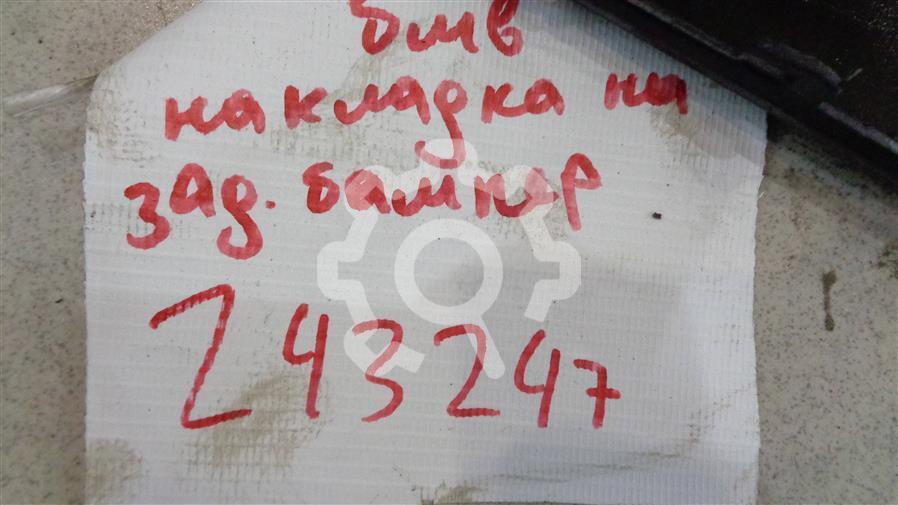 бмв
накладка на
зад. бампер
243247